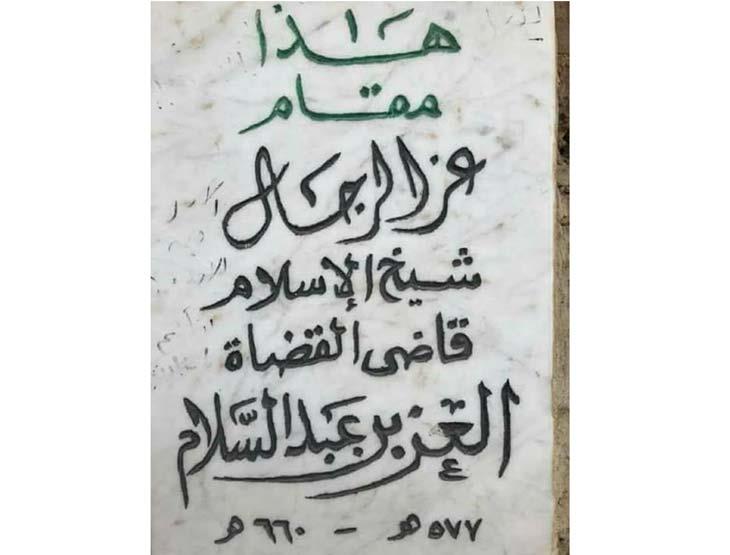 هذا
مقام
عز الرجال
شيخ الإسلام
قاضى القضاة
العز بن عبد السَّلام
٥٧٧ هـ - ٦٦٠ هـ